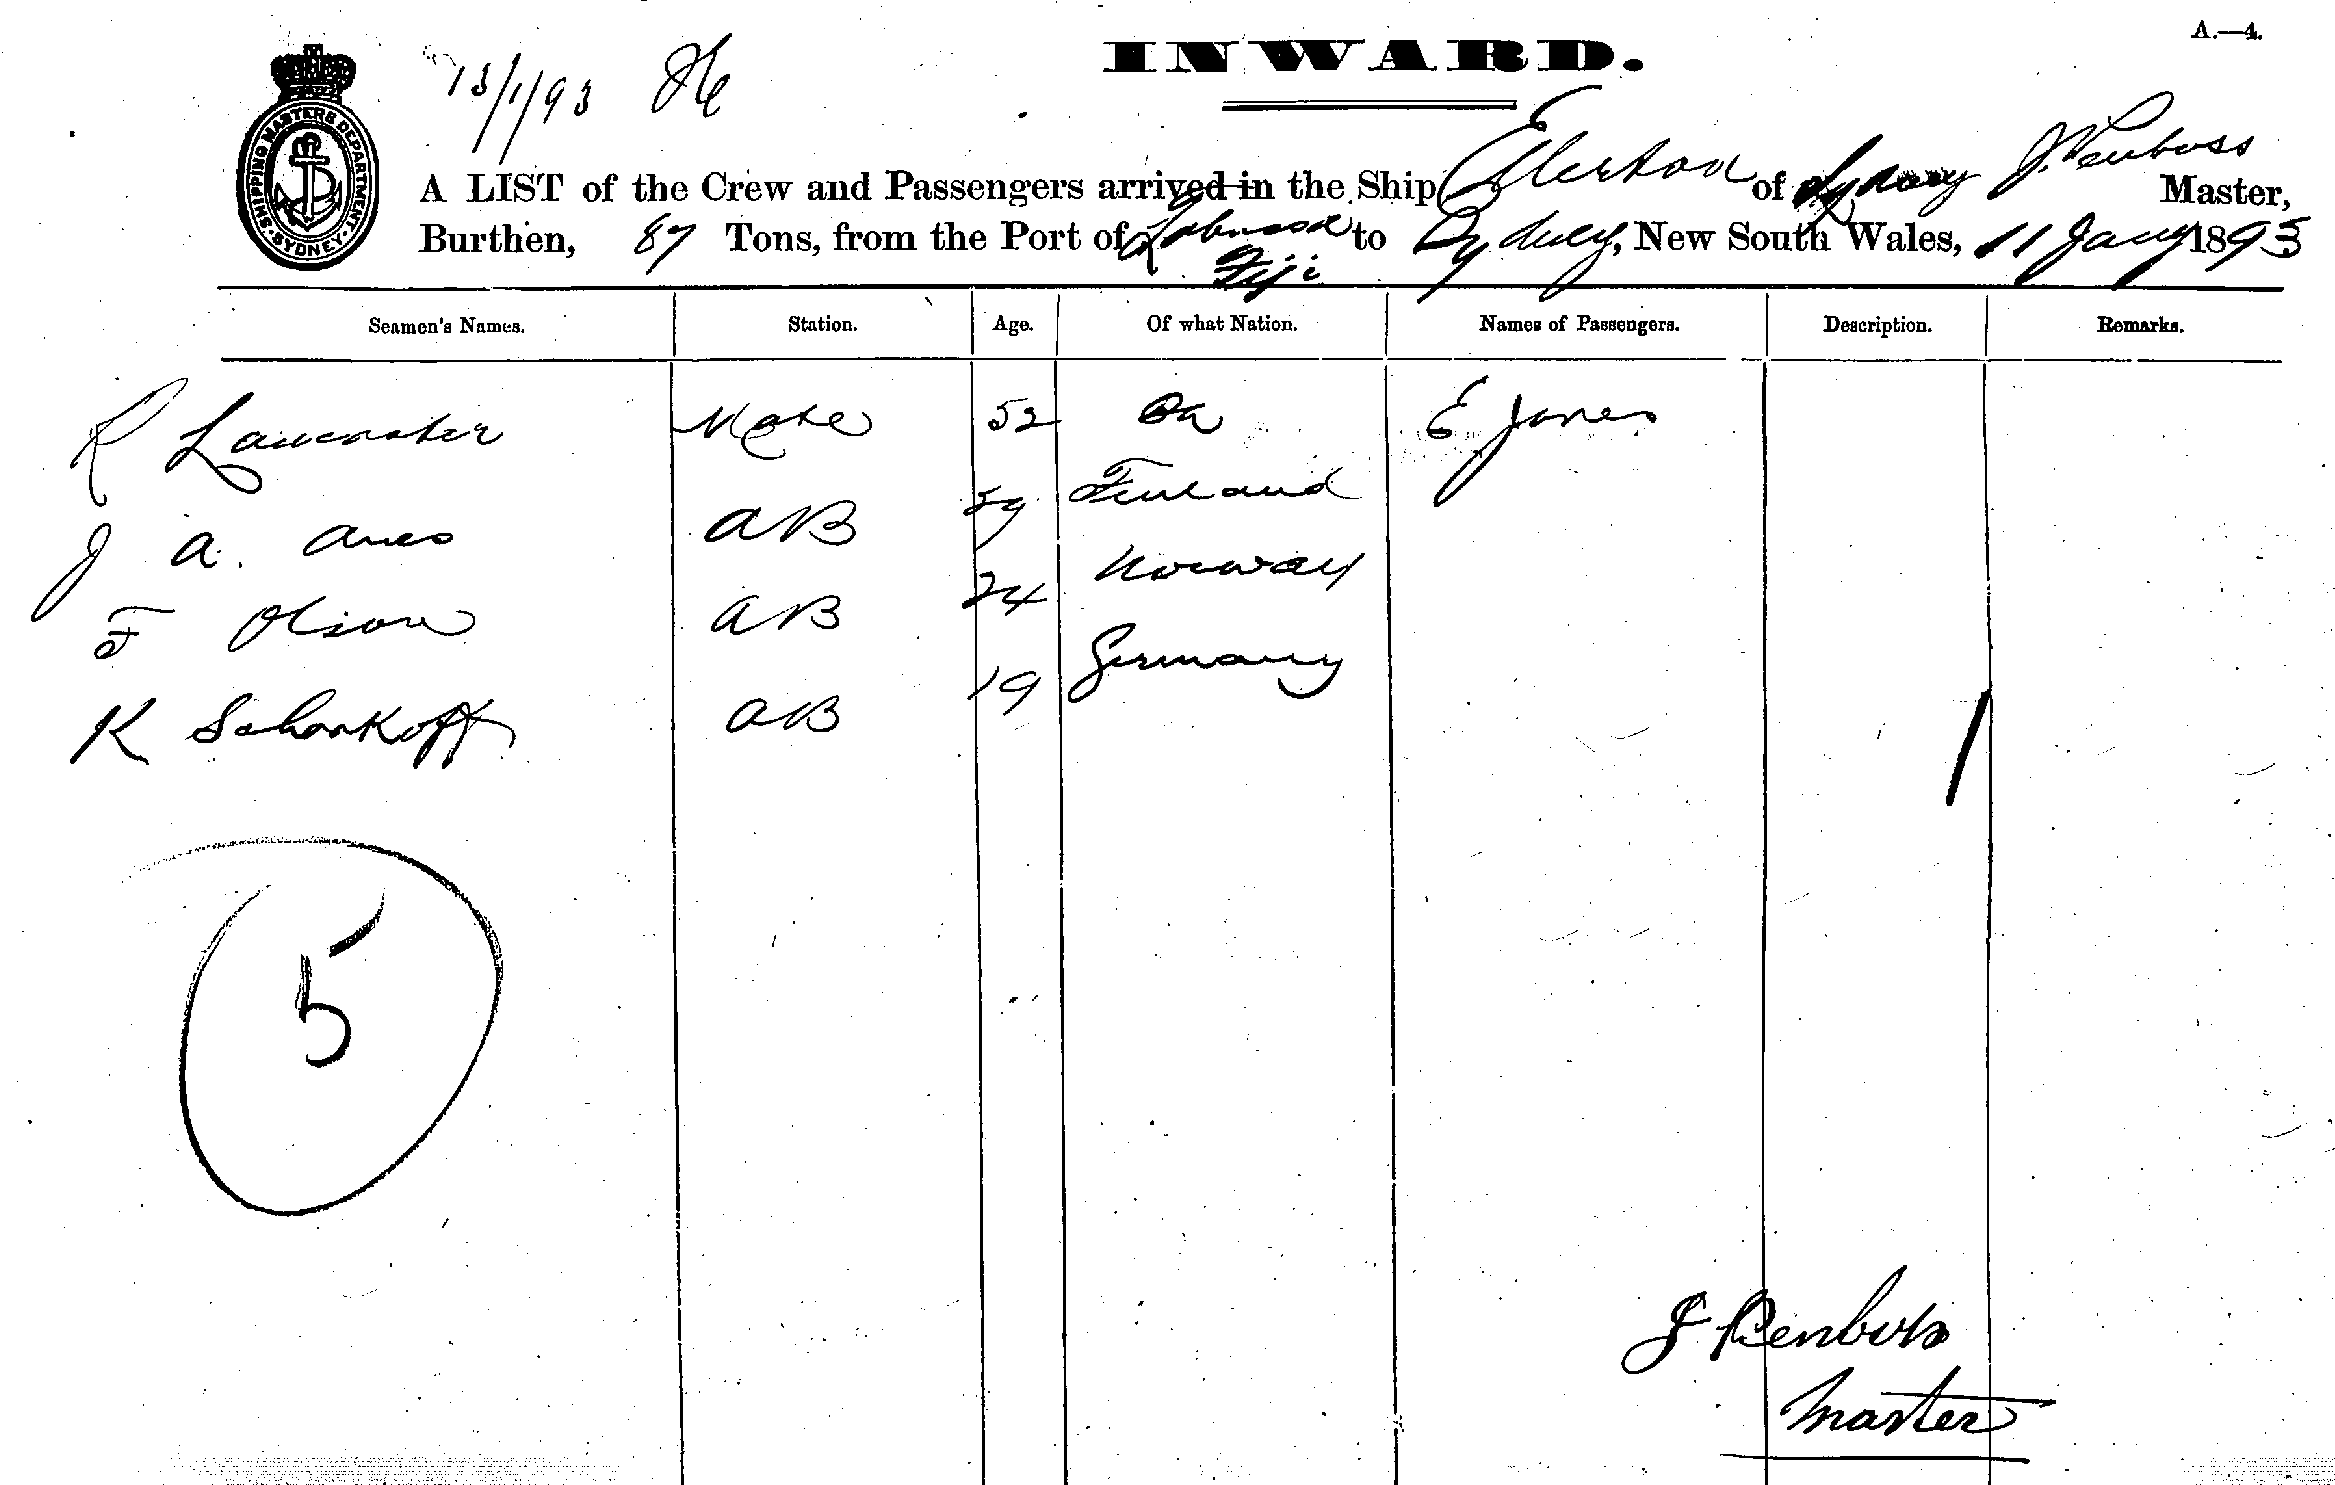 A.—4.
INWARD.
13/1/93
SHIPPING MASTERS DEPARTMENT · SYDNEY ·
A LIST of the Crew and Passengers arrived in the Ship Ellerton of Sydney J. Penboss Master,
Burthen, 87 Tons, from the Port of Fiji to Sydney, New South Wales, 11 Jany 1893
Seamen's Names. Station. Age. Of what Nation. Names of Passengers. Description. Remarks.
R Lancaster Mate 52 E Jones
J A. AB 59 Finland
F Olson AB 24 Norway
K Schonkoff AB 19 Germany
5
J Penboss
Master